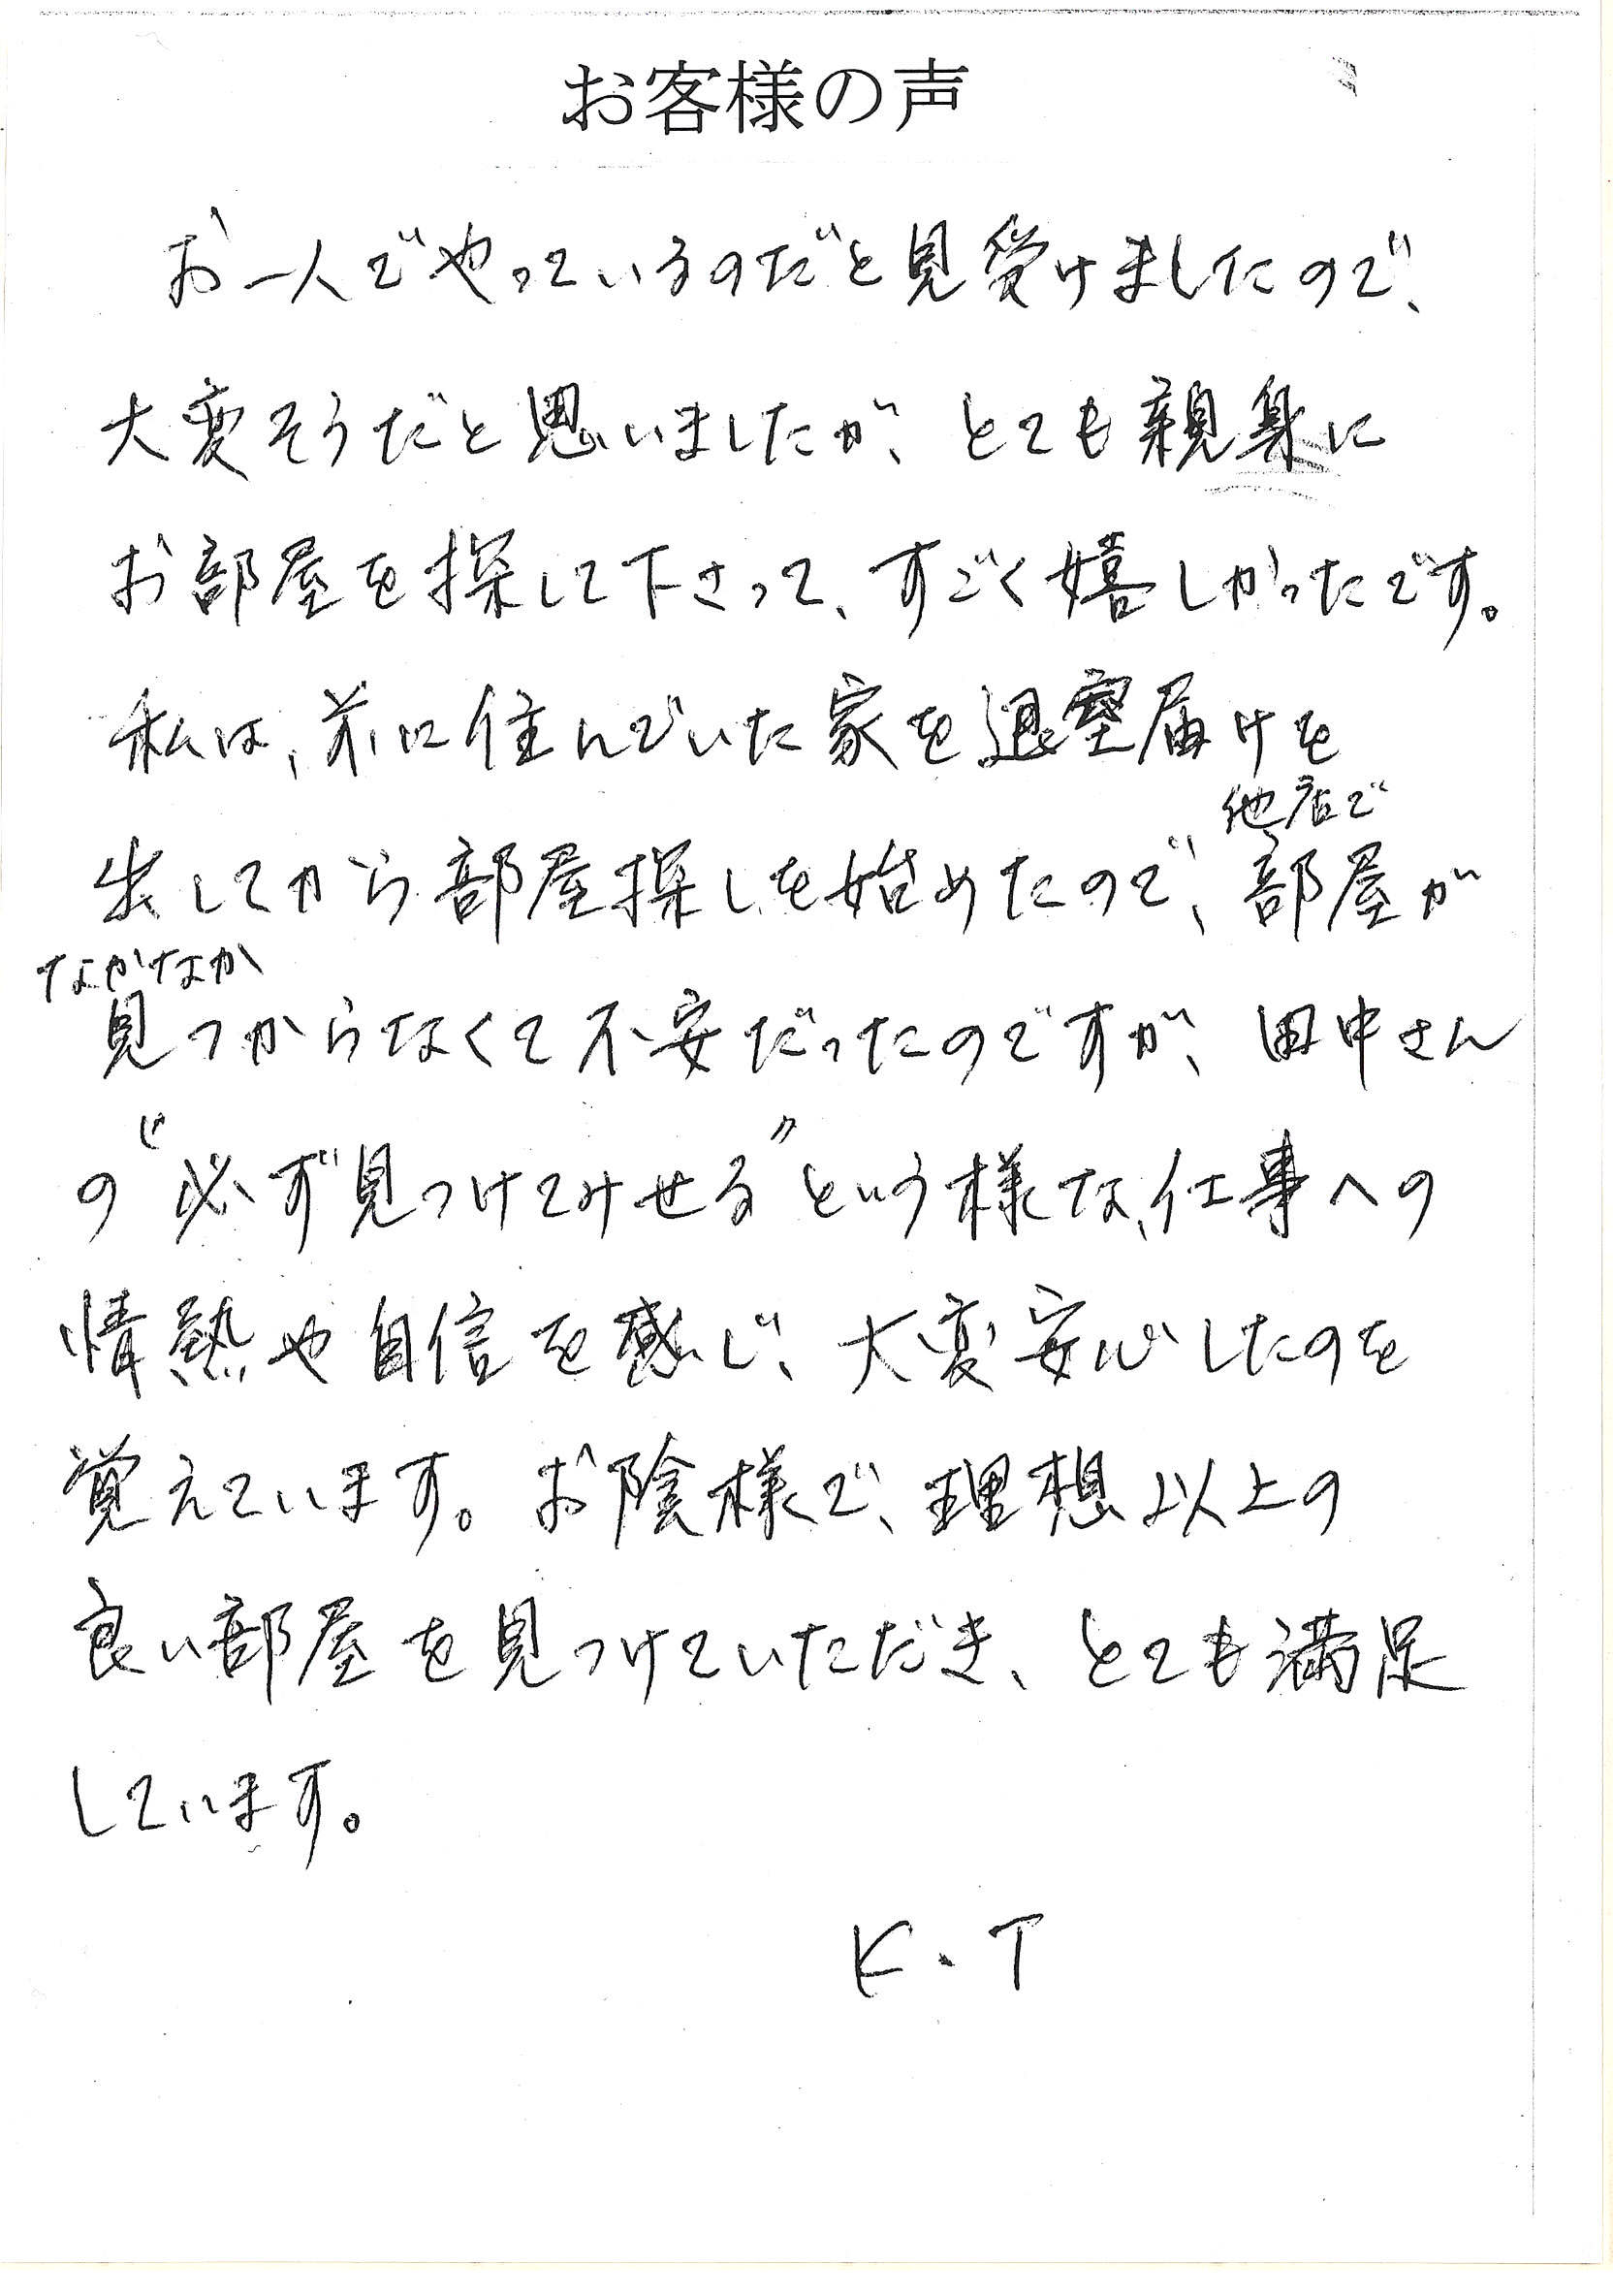 お客様の声
お一人でやっているのだと見受けましたので、
大変そうだと思いましたが、とても親身に
お部屋を探して下さって、すごく嬉しかったです。
私は、前に住んでいた家を退室届けを
他店で
出してから部屋探しを始めたので、部屋が
なかなか
見つからなくて不安だったのですが、田中さん
の"必ず見つけてみせる"という様な、仕事への
情熱や自信を感じ、大変安心したのを
覚えています。お陰様で、理想以上の
良い部屋を見つけていただき、とても満足
しています。
K.T